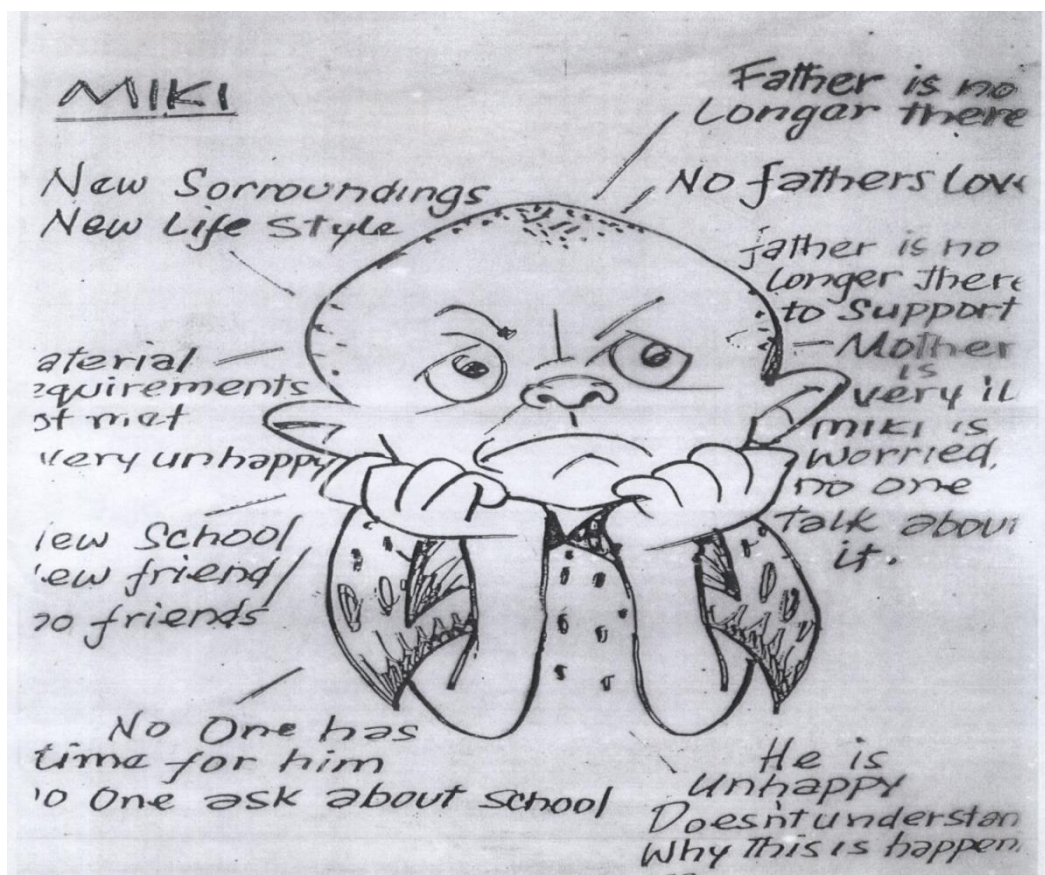 MIKI
New Sorroundings
New Life Style
aterial
equirements
ot met
very unhappy
ew School
ew friend
no friends
No One has
time for him
o One ask about School
Father is no
Longer there
No fathers Love
father is no
longer there
to Support
Mother
is
very il
MIKI is
worried,
no one
Talk about
it.
He is
Unhappy
Doesn't understan
Why This is happen